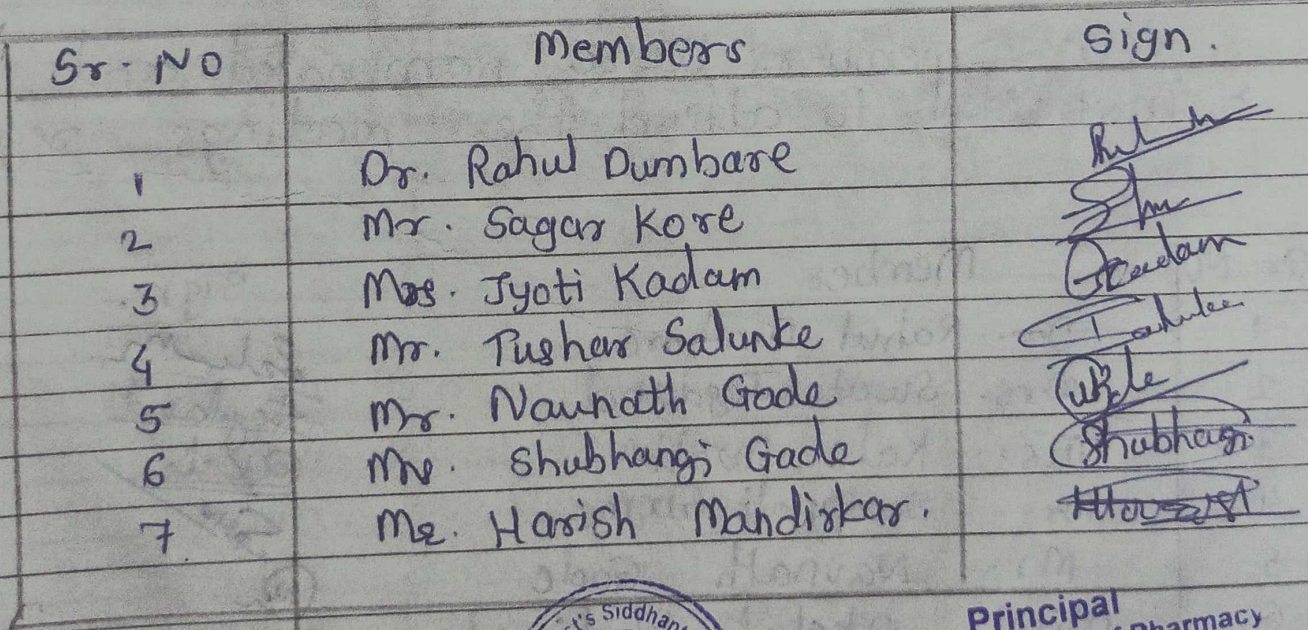 Sr. NO Members Sign.
1 Dr. Rahul Dumbare
2 Mr. Sagar Kore
3 Mrs. Jyoti Kadam Kadam
4 Mr. Tushar Salunke
5 Mr. Navnath Gade
6 Shubhangi Gade Shubhangi
7. Mr. Harish Mandirkar.
's Siddhan
Principal
Pharmacy